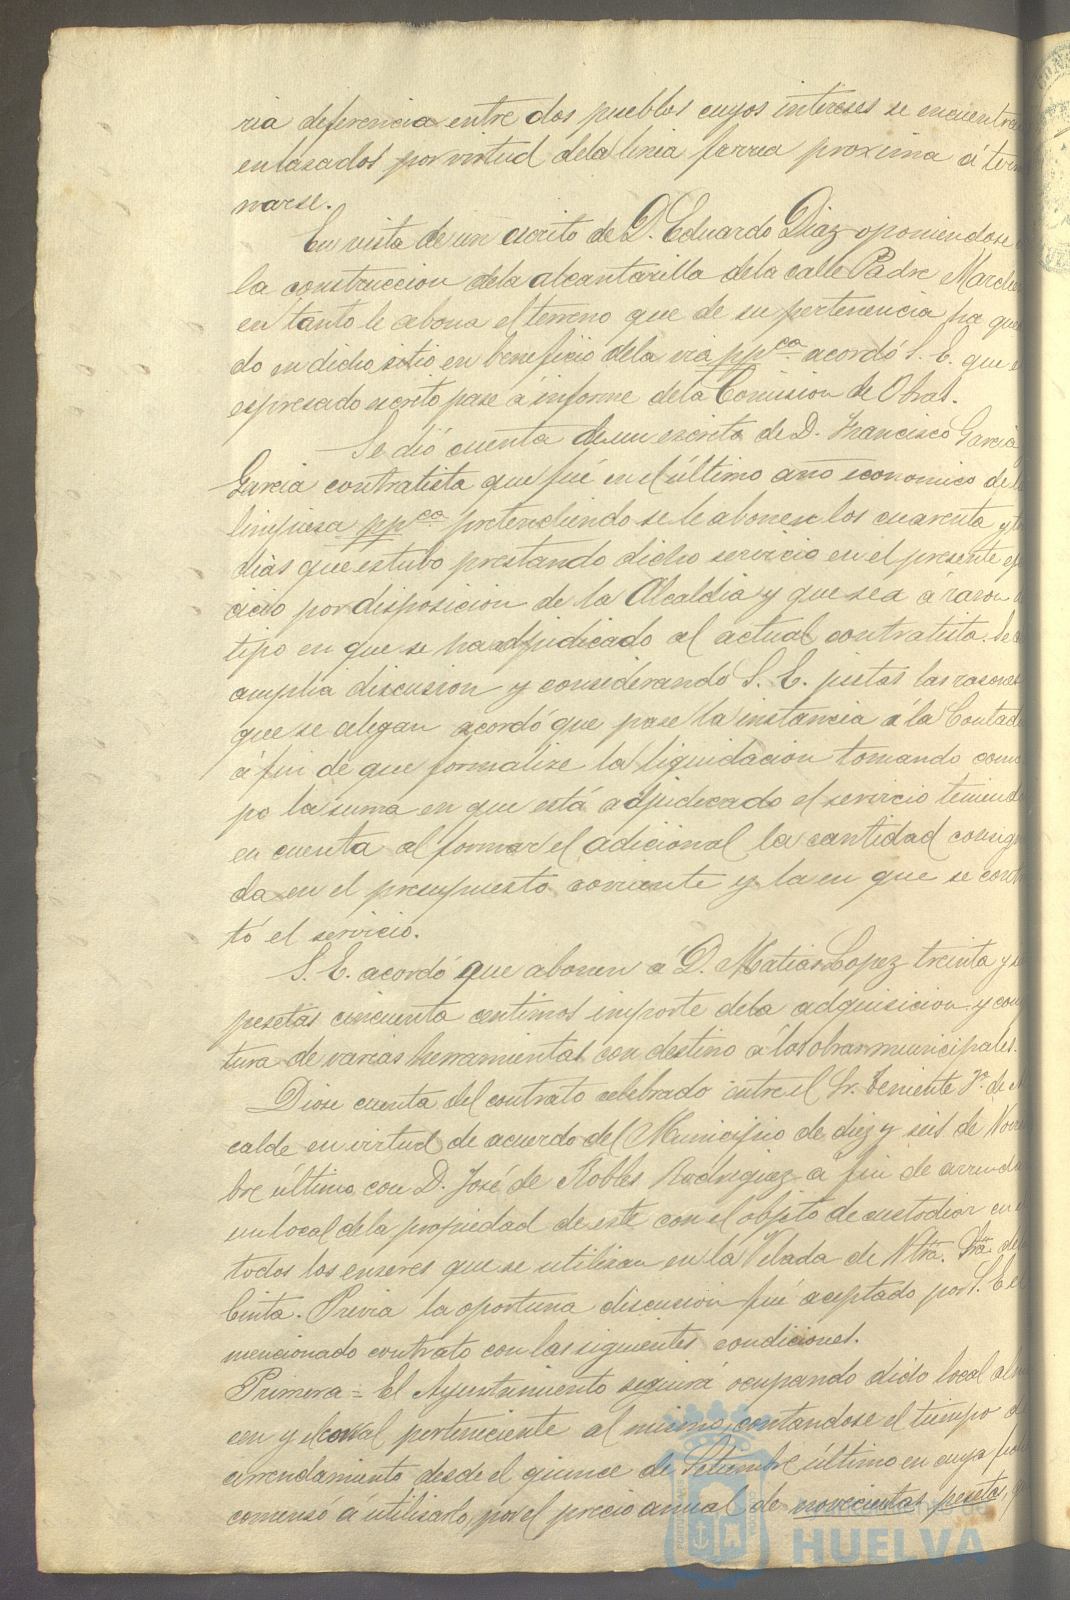 ria deferencia entre dos pueblos cuyos intereses se encuentra
enlasados por virtud dela linea ferrea proxima á ter
narse.
En vista de un escrito de D. Eduardo Diaz oponiendose
la construccion dela alcantarilla dela calle Padre Marche
en tanto le abona el terreno que de su pertenencia ha que
do en dicho sitio en beneficio dela via ppca acordó S. E. que
espresado escrito pase á informe dela Comision de Obras.
Se dió cuenta de un escrito de D. Francisco Garcia
Garcia contratista que fué en el último año economico de
limpiesa ppca pretendiendo se le abonen los cuarenta y
dias que estubo prestando dicho servicio en el presente eje
cicio por disposicion de la Alcaldia y que sea á razon
tipo en que se ha adjudicado al actual contratista. Se
amplia discusion y considerando S. E. justas las rasones
que se alegan acordó que pase la instancia á la Contad
á fin de que formalize la liquidacion tomando como
po la suma en que está adjudicado el servicio teniendo
en cuenta al formar el adicional la cantidad consig
da en el presupuesto corriente y la en que se cont
tó el servicio.
S. E. acordó que abonen á D. Matias Lopez treinta y
pesetas cincuenta centimos importe dela adquisicion y com
tura de varias herramientas con destino á las obras municipales.
Diose cuenta del contrato celebrado entre el Sr. Teniente 1º. de Al
calde en virtud de acuerdo del Municipio de diez y seis de Novi
bre último con D. José de Robles Rodriguez á fin de arrenda
un local de la propiedad de este con el objeto de custodiar en
todos los enseres que se utilisan en la Velada de Ntra. Sra. dela
Cinta. Previa la oportuna discusion fué aceptado por S. E. el
mencionado contrato con las siguientes condiciones.
Primera = El Ayuntamiento seguirá ocupando dicho local alma
cen y el corral perteneciente al mismo, contandose el tiempo de
arrendamiento desde el quince de Setiembre último en cuya fecha
comensó á utilisarlo, por el precio anual de novecientas pesetas,
HUELVA